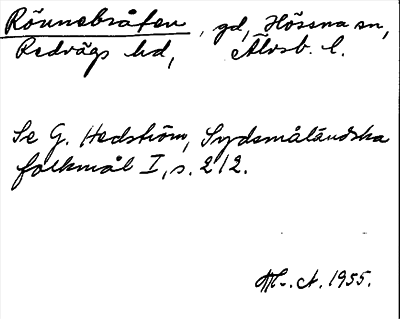 Rönnebråten, gd, Hössna sn,
Redvägs hd, Älvsb. l.
Se G. Hedström, Sydsmåländska
folkmål I, s. 212.
1955.